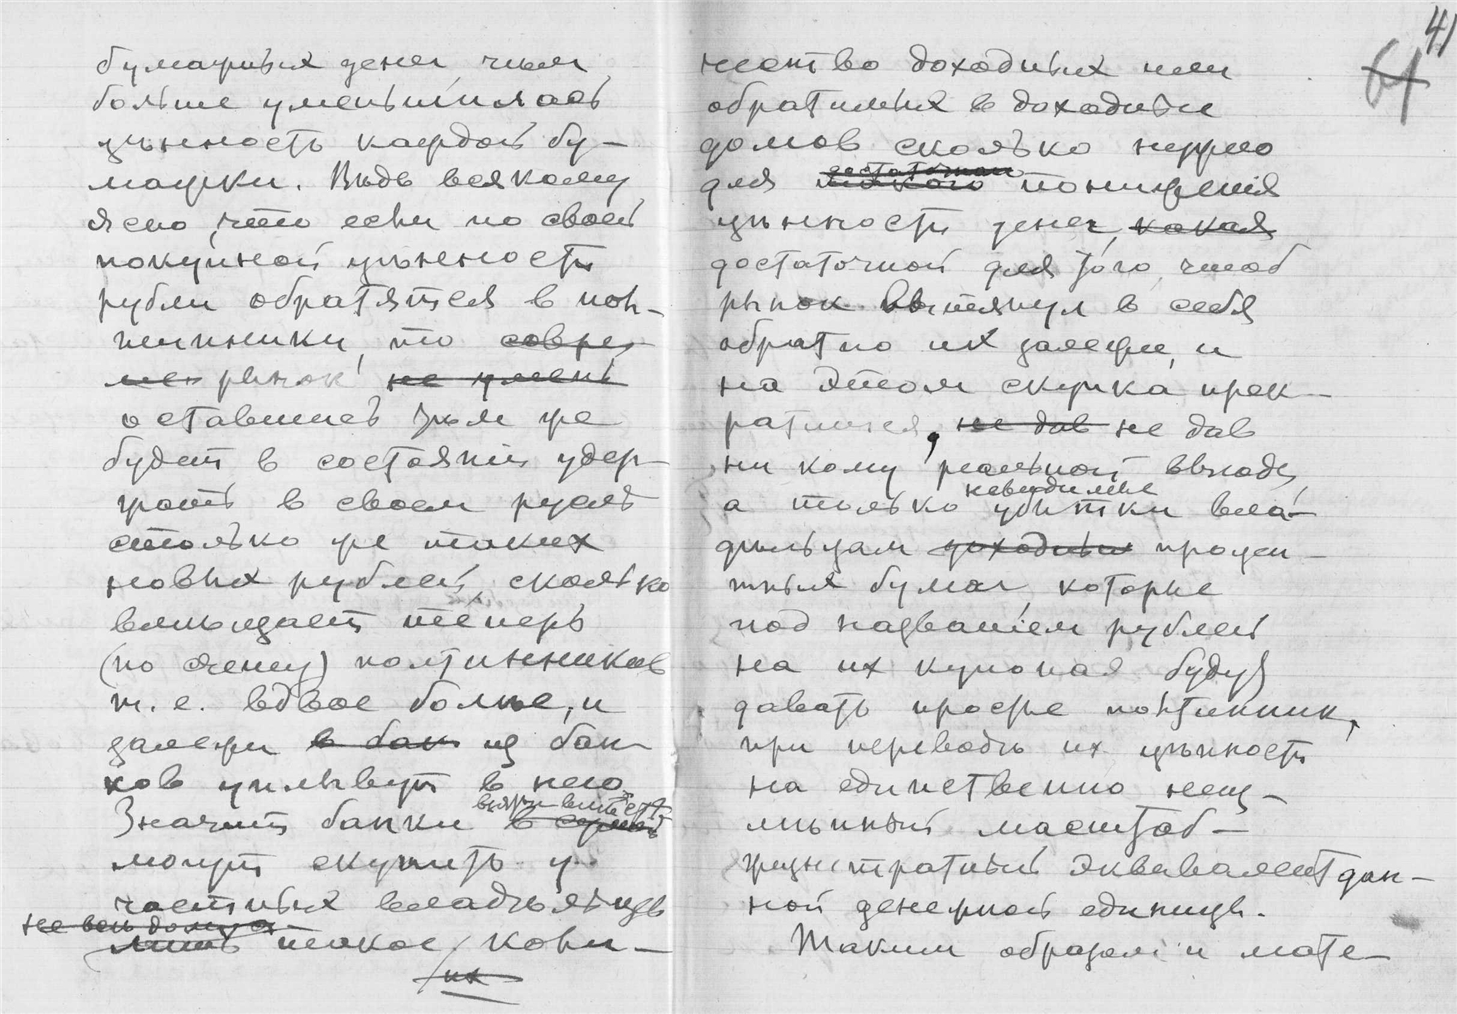 бумажных денег, чем
больше уменьшилась
цѣнность каждой бу-
мажки. Вѣдь всякому
ясно, что если по своей
покупной цѣнности
рубли обратятся в пол-
тинники, то совре-
мен рынок, не умень
оставшись тѣм же
будет в состоянiи удер-
жать в своем руслѣ
столько же таких
новых рублей, сколько
вмѣщает теперь
(по счету) полтинников
т. е. вдвое болѣе, и
залежи в бан из бан-
ков уплывут в него.
Значит банки
могут скупить у
частных владѣльцев
не всѣ дома, а
лишь такое коли-
их
41
64
чество доходных или
обратимых в доходные
домов сколько нужно
достаточнаго
для такого пониженiя
цѣнности денег, какая
достаточной для того, чтоб
рынок втянул в себя
обратно их залежи, и
на этом скупка прек-
ратится, не дав не дав
ни кому реальной выгоды,
невидимые
а только убытки вла-
дѣльцам доходных процен-
тных бумаг, которые
под названiем рублей
на их купонах будут
давать прежде полтинник,
при переводѣ их цѣнности
на единственно неиз-
мѣнный масштаб -
данной денежной единицы.
Таким образом и мате-